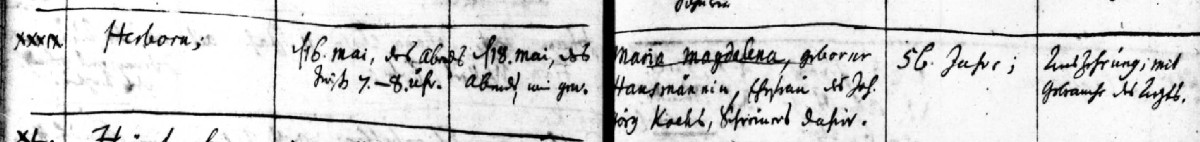 XXXIX Herborn;
d 16. mai, des Abends
7.–8. uhr.
d 18. mai, des
Abends, wie gew.
Maria Magdalena, geborne
Hausmännin, Ehefrau des Joh.
Görg Kochs, Schreiners dahier.
56. Jahre;
Auszehrung; mit
Gebrauch des Arzts.
XL.